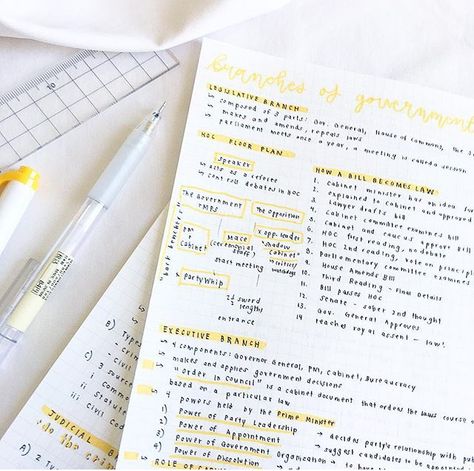 branches of government
LEGISLATIVE BRANCH
↳ composed of 3 parts: Gov. General, House of Commons, the S
↳ makes and amends, repeals laws
↳ parliament meets once a year, a meeting is called a session
HOC FLOOR PLAN
Speaker
↳ acts as a referee
↳ controls debates in HOC
The Government
MPs
The Opposition
PM +
Cabinet
Mace
(ceremonial
staff)
opp. leader
Shadow
Cabinet
start meeting
"back benchers"
Party Whip
2½ sword
lengths
entrance
HOW A BILL BECOMES LAW
1. Cabinet minister has an idea
2. explained to cabinet and approved
3. Lawyer drafts bill
4. Cabinet committee examines bill
5. Cabinet and caucus approve bill
6. HOC first reading, no debate
7. HOC 2nd reading, vote on
8. Parliamentary committee examines
9. House Amends Bill
10. 3rd Reading - Final details
11. Bill Passes HOC
12. Senate - sober 2nd thought
13. Gov. General Approves
14. reaches royal assent - law!
EXECUTIVE BRANCH
↳ 4 components: Governor General, PM, Cabinet, bureaucracy
↳ makes and applies government decisions
↳ "Order in Council" is a cabinet document that orders the
based on a particular law
↳ 4 powers held by the Prime Minister
Power of Party Leadership → decides party's relationship with
Power of Appointment → suggest candidates to be
Power of Government Organization
Power of Dissolution
ROLE OF
B) Types
- crim
- civi
C) 3 sources
i common
ii Statute
iii Civil Code
JUDICIAL B
A) 2 Ty